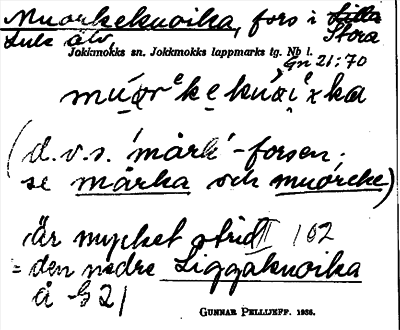 Muorkekuoika, fors i Lilla
Lule älv Stora
Jokkmokks sn. Jokkmokks lappmarks tg. Nb l.
Gn 21:70
(d.v.s. 'mårk'-forsen;
se mårka och muorcke)
är mycket strid 162
= den nedre Liggakuoika
å G 21
GUNNAR PELLIJEFF. 1938.